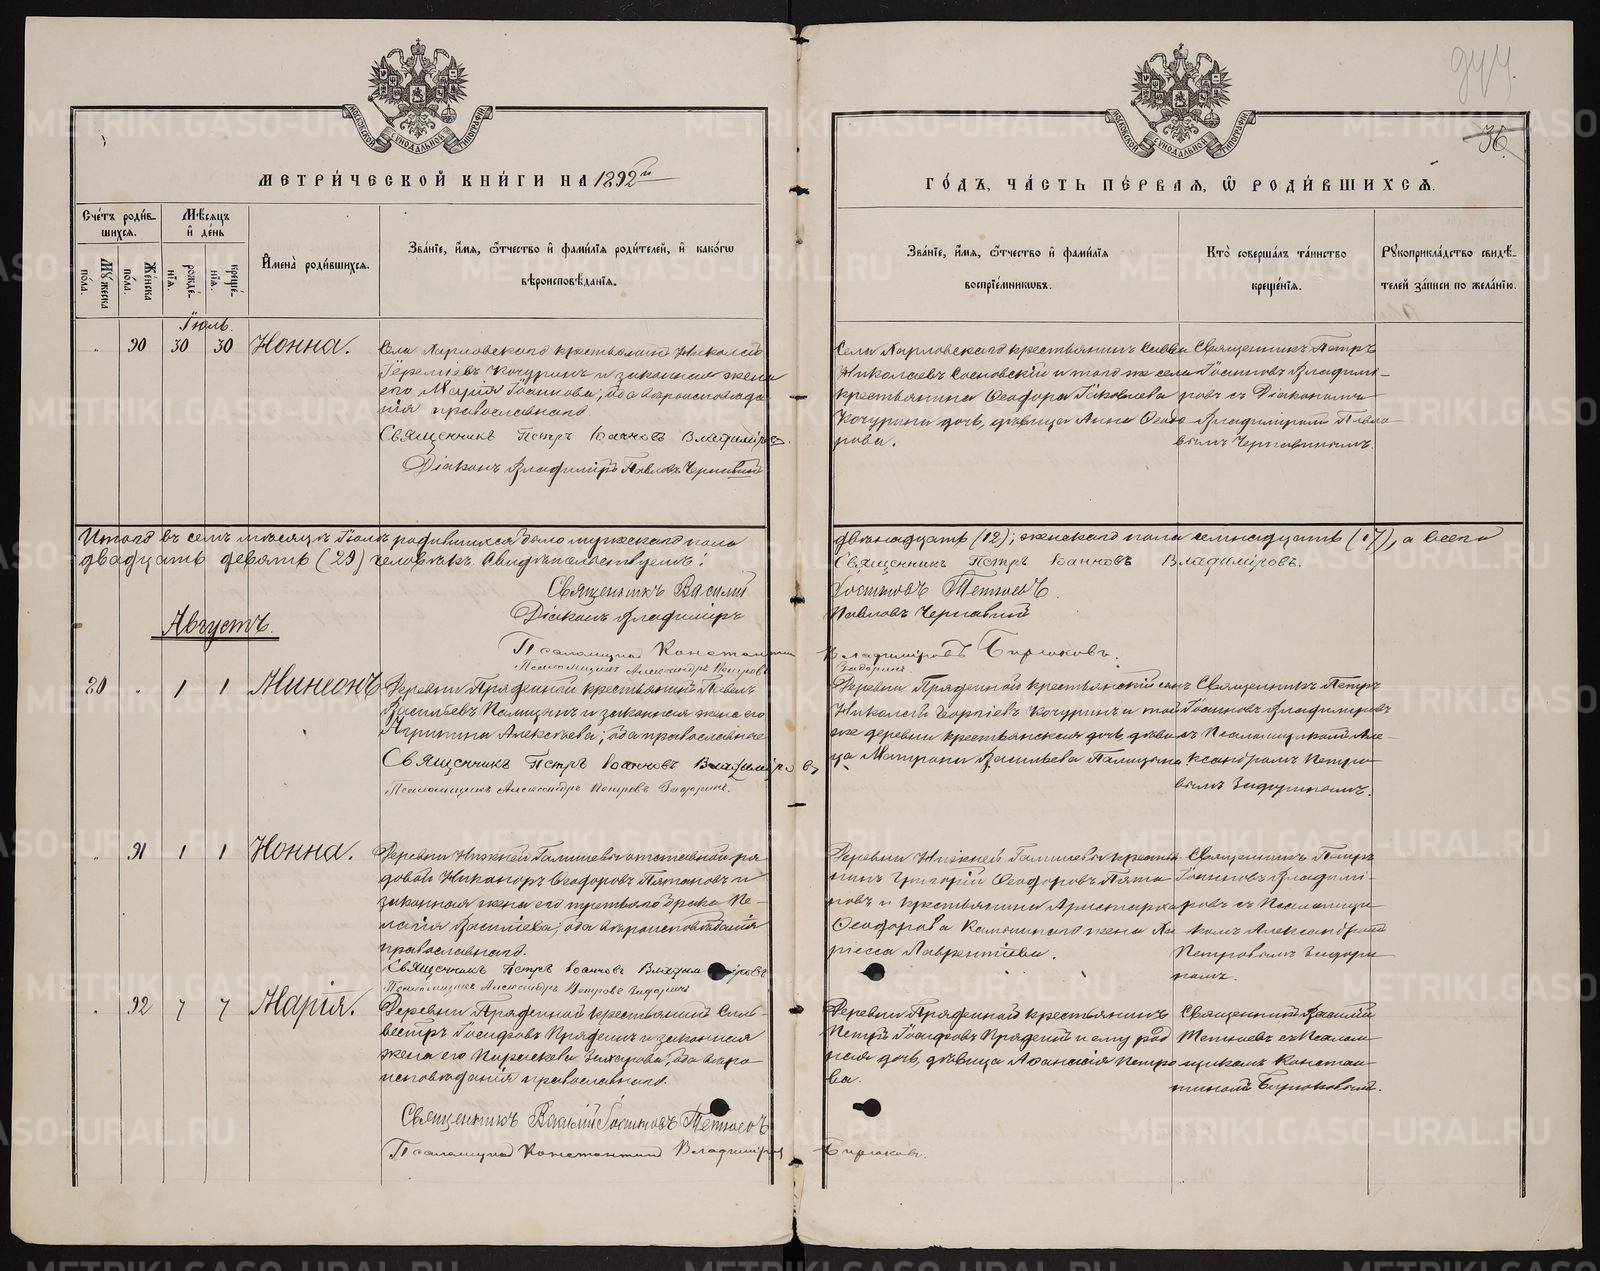 944.
36
МОСКОВСКОЙ СѴНОДАЛЬНОЙ ТИПОГРАФІИ
МЕТРИ́ЧЕСКОЙ КНИ́ГИ НА 1892й
Сче́тъ роди́вшихсѧ.
Мѣ́сѧцъ и҆ де́нь
Му́жеска по́ла.
Же́нска по́ла.
рожде́нїѧ.
креще́нїѧ.
И҆мена̀ роди́вшихсѧ.
Зва́нїе, и҆́мѧ, ѻ҆́тчество и҆ фами́лїѧ роди́телей, и҆ како́гѡ
вѣроисповѣ́данїѧ.
Іюль.
90 30 30 Нонна.
Села Харловскаго крестьянинъ Николай
Кочуринъ и законная жена
его Марія Іоаннова; оба вѣроисповѣда
нія православнаго.
Священникъ Петръ Іоанновъ Владиміровъ.
Діаконъ Владиміръ Павловъ Чернавинъ
Итого въ семъ мѣсяцѣ Іюлѣ родившихся было мужеска пола
двадцать девять (29) человѣкъ. Свидѣтельствуемъ:
Священникъ Василій
Діаконъ Владиміръ
Псаломщикъ Константинъ
Псаломщикъ Александръ Петровъ
Августъ.
20 1 1
Деревни Пряденной крестьянинъ Павелъ
Васильевъ Палицынъ и законная жена его
Алексѣева; оба православные
Священникъ Петръ Іоанновъ Владиміровъ
Псаломщикъ Александръ Петровъ Задоринъ.
91 1 1 Нонна.
Деревни Нижней отставной ря
довой Никаноръ Ѳеодоровъ и
законная жена его третьяго брака Пе-
лагія Василіева; оба вѣроисповѣданія
православнаго.
Священникъ Петръ Іоанновъ Владиміровъ
Псаломщикъ Александръ Петровъ Задоринъ
92 7 7 Марія.
Деревни Пряденной крестьянинъ Силь-
вестръ Іосифовъ Пряденъ и законная
жена его Параскева Захарова, оба вѣро-
исповѣданія православнаго.
Священникъ Василій Іоанновъ
Псаломщикъ Константинъ Владиміровъ
МОСКОВСКОЙ СѴНОДАЛЬНОЙ ТИПОГРАФІИ
ГО́ДЪ, ЧА́СТЬ ПЕ́РВАѦ, Ѡ҆ РОДИ́ВШИХСѦ.
Зва́нїе, и҆́мѧ, ѻ҆́тчество и҆ фами́лїѧ
воспрїе́мникѡвъ.
Кто̀ соверша́лъ та́инство
креще́нїѧ.
Рꙋкоприкла́дство свидѣ́-
телей за́писи по жела́нїю.
Села Харловскаго крестьянинъ Савва
Николаевъ Сосновскій и того же села
крестьянина Ѳеодора Іаковлева
Кочурина дочь, дѣвица Анна Ѳеодо
рова.
Священникъ Петръ
Іоанновъ Владимі-
ровъ съ Діакономъ
Владиміромъ Павло
вымъ Чернавинымъ.
двѣнадцать (12), женскаго пола семнадцать (17), а всего
Священникъ Петръ Іоанновъ Владиміровъ.
Іоанновъ
Павловъ Чернавинъ
Владиміровъ Бирюковъ.
Задоринъ
Деревни Пряденной крестьянскій сынъ
Николай Георгіевъ Кочуринъ и той
же деревни крестьянская дочь, дѣви
ца Матрона Васильева Палицына
Священникъ Петръ
Іоанновъ Владиміровъ
съ Псаломщикомъ Але
ксандромъ Петро-
вымъ Задоринымъ.
Деревни Нижней крестья
нинъ Григорій Ѳеодоровъ
и крестьянина Аристарха
Ѳеодорова жена Ла
рисса Лаврентіева.
Священникъ Петръ
Іоанновъ Владимі-
ровъ съ Псаломщи
комъ Александромъ
Петровымъ Задори
нымъ.
Деревни Пряденной крестьянинъ
Петръ Іосифовъ Пряденъ и ему род
ная дочь, дѣвица Аѳанасія Петро
ва.
Священникъ Василій
съ Псалом
щикомъ Констан
тиномъ Бирюковымъ.
Бирюковъ.